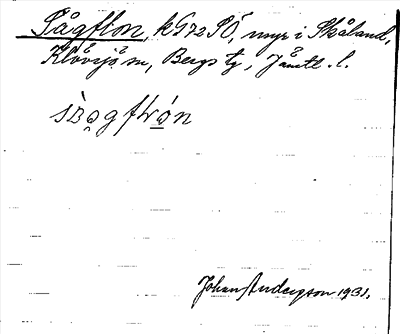 Sågflon, k G72SÖ, myr i Skåland,
Klövsjö sn, Bergs tg, Jämtl. l.
Johan Anderson 1931.